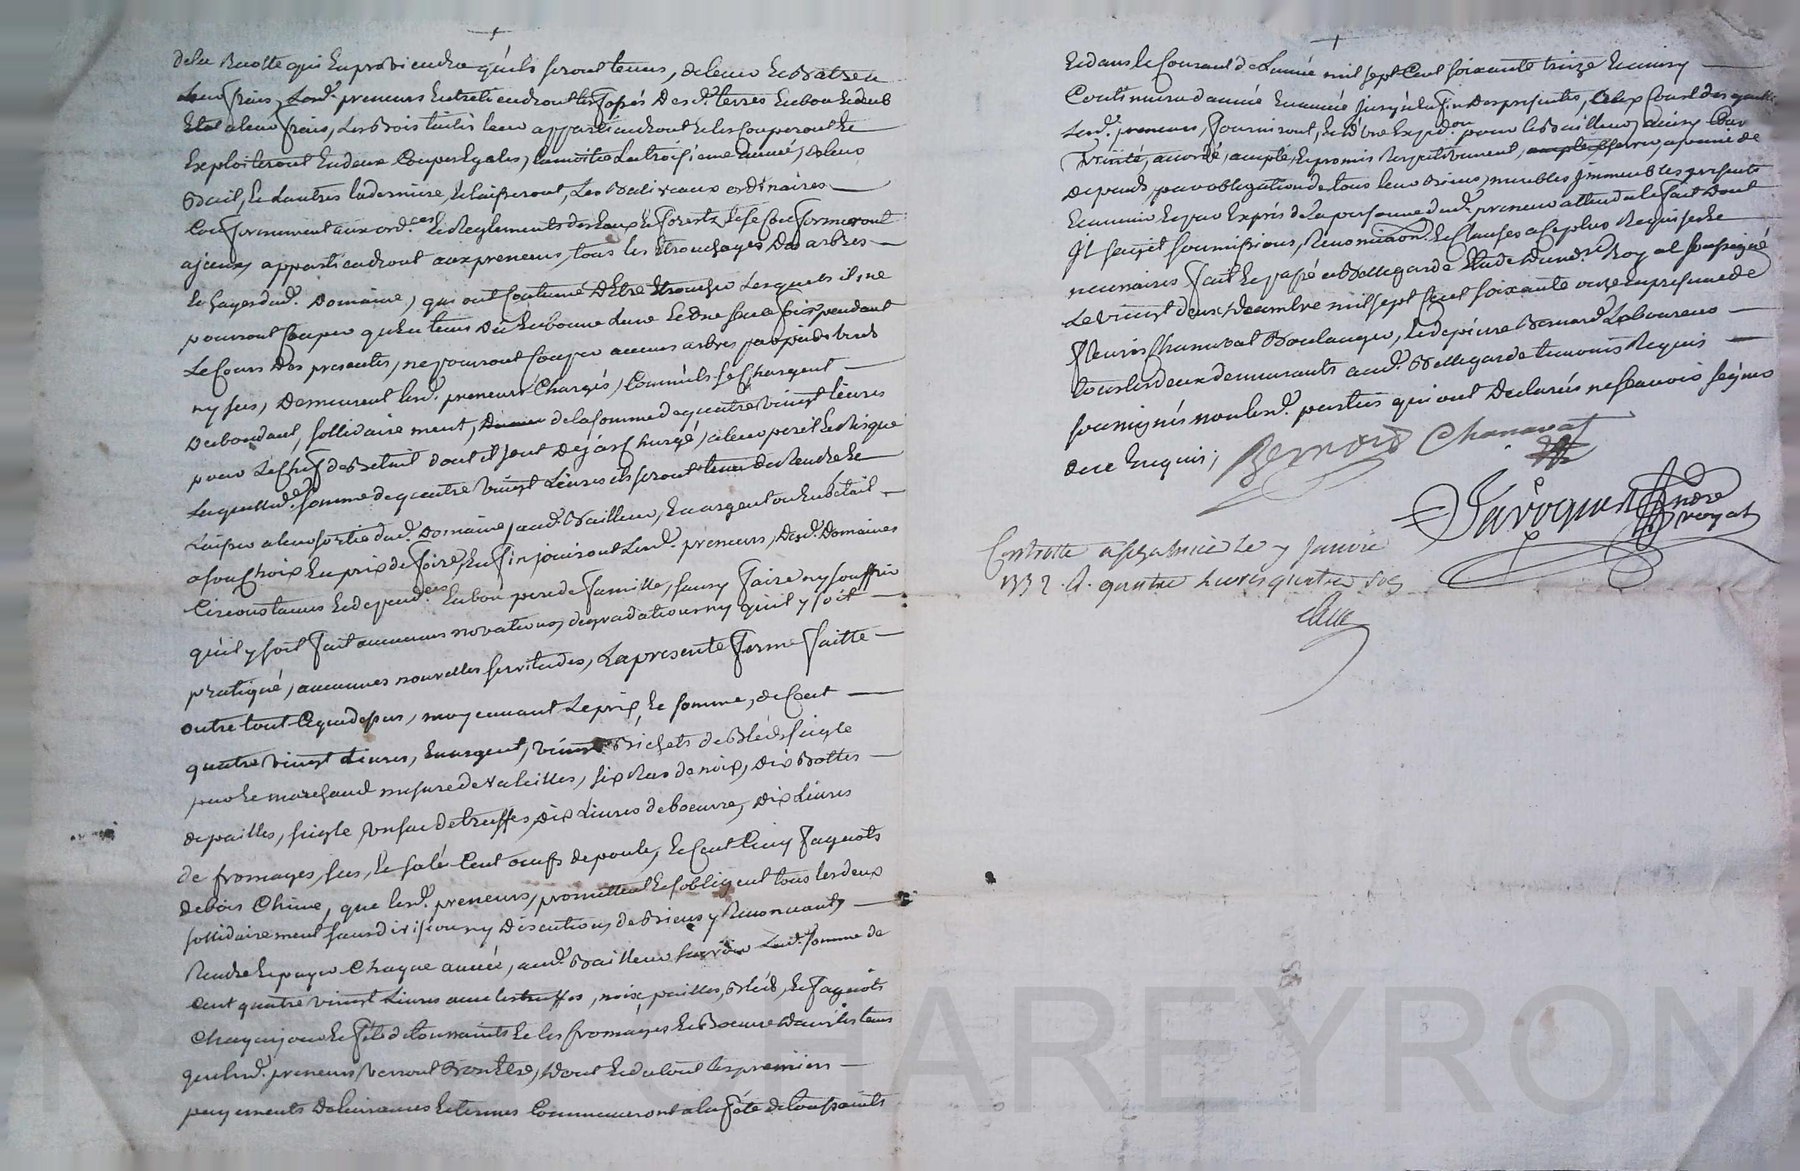 dela Recolte qui En proviendra qu'ils seront tenus, de lever Et Battre a
Leur frais, Lesd.^s preneurs Entretiendront les fossés Desd.^s terres En bon Et deub
Etat a leur frais, Les Bois taillis leur appartiendront Et les Couperont Et
Exploiteront En deux Coupes Egales, la moitié La troisieme année, de leur
Bail, Et L'autres la derniere, Et laisseront, Les Baliveaux ordinaires
Conformement aux ord.^ces Et Reglements des Eaux Et forests, Et se Conformeront
ajceux appartiendront aux preneurs, tous les Etronchages Des arbres
Et hayes dud.^t Domaine, qui ont Coutume D'Etre Etronchés Lesquels il ne
pourront Couper qu'En tems Dû En bonne lune Et Une seule fois pendant
Le Cours Des presentes, ne pourront Couper aucuns arbres par pied verds
ny secs, Demeurent lesd.^s preneurs Chargés, Comme ils se Chargent
solidairement, de la somme de quatre vingt livres
pour Le Chef de Betail dont il sont Dejas Chargé, a leur peril Et Risque
Laquelle d.^e somme de quatre vingt Livres ils seront tenus de Rendre Et
Laisser a leur sortie dud.^t Domaine, aud.^t Bailleur, En argent ou En Betail
a son Choix En prix de foire, Enfin jouiront Lesd.^s preneurs, Desd.^s Domaines
Circonstances Et depend.^ces En bon pere de famille, sans faire ny souffrir
qu'il y soit fait aucunes novations, degradations ny qu'il y soit
pratiqué, aucunes nouvelles servitudes, La presente ferme faitte
outre tout Ce que dessus, moyennant Le prix, Et somme, de Cent
quatre vingt Livres, En argent, vingt Bichets de Bled seigle
pur Et marchand mesure de Valeilles, six Ras de noix, Dix Bottes
de pailles, seigle Un sac de truffes, Dix Livres de boeurre, Dix Livres
de fromages, secs, Et salés Cent oeufs de poule, Et Cent Cinq fagots
de bois Chêne, que lesd.^s preneurs, promettent Et s'obligent tous les deux
sollidairement sans division ny Discutions, de Biens y Renonceants
Rendre Et payer Chaque année, aud.^t Bailleur Lad.^e somme de
Cent quatre vingt Livres avec les truffes, noix, pailles, Bled, Et fagots
Chaque jour Et fête de toussaints Et les fromages Et Boeurre Dans les tems
que lesd.^s preneurs verront Bon Etre, Dont Et du tout Les premiers
payements De livrances Et termes Commenceront a la fête de toussaints
Et dans le Courant de L'année mil sept Cent soixante treize Et ainsy
Continuera d'année En année jusqu'a la fin Des presentes,
Lesd.^s preneurs, fourniront, Expéd.^on pour le Bailleur, ainsy
traitté, accordé, accepté, Et promis Respectivement, a peine de
Depends, par obligation de tous leurs Biens, meubles immeubles presents
Et avenir Et par Exprés De La personne dud.^t preneur attendu Le fait Dont
Il s'agit soumissions, Renonciation, Et Clauses a Ce plus Requises Et
necessaires fait Et passé a Bellegarde Etude Du no.^re Royal soussigné
Le vingt deux decembre mil sept Cent soixante onze En presence de
fleuris Chanavat Boulanger, Et de pierre Bernard Laboureur
tous les deux demeurants aud.^t Bellegarde temoins Requis
soussignés non lesd.^s parties qui ont Declarés ne sçavoir signer
de ce Enquis;
Bernard Chanavat
Favrogues
Controllé a le 7 janvier
1772 R. quatre livres quatre sols
CHAREYRON